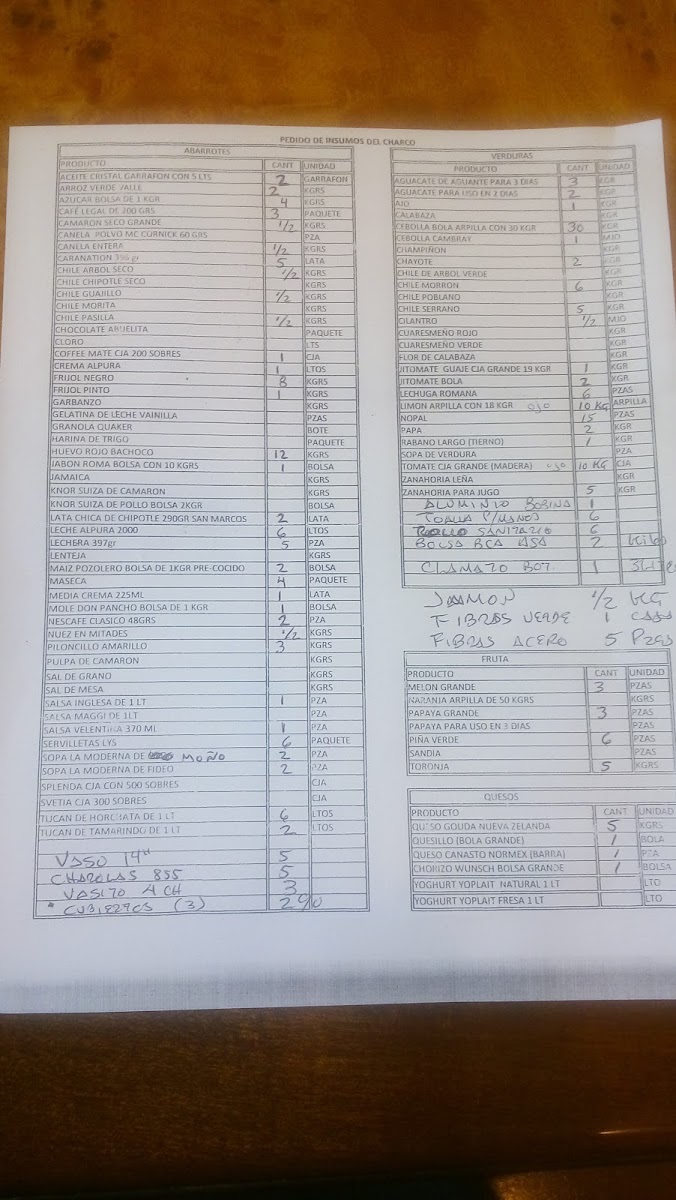 PEDIDO DE INSUMOS DEL CHARCO
ABARROTES
PRODUCTO CANT UNIDAD
ACEITE CRISTAL GARRAFON CON 5 LTS 2 GARRAFON
ARROZ VERDE VALLE 2 KGRS
AZUCAR BOLSA DE 1 KGR 4 KGRS
CAFÉ LEGAL DE 200 GRS 3 PAQUETE
CAMARON SECO GRANDE 1/2 KGRS
CANELA POLVO MC CORNICK 60 GRS PZA
CANELA ENTERA 1/2 KGRS
CARANATION gr 5 LATA
CHILE ARBOL SECO 1/2 KGRS
CHILE CHIPOTLE SECO KGRS
CHILE GUAJILLO 1/2 KGRS
CHILE MORITA KGRS
CHILE PASILLA 1/2 KGRS
CHOCOLATE ABUELITA PAQUETE
CLORO LTS
COFFEE MATE CJA 200 SOBRES 1 CJA
CREMA ALPURA 1 LTOS
FRIJOL NEGRO 8 KGRS
FRIJOL PINTO 1 KGRS
GARBANZO KGRS
GELATINA DE LECHE VAINILLA PZAS
GRANOLA QUAKER BOTE
HARINA DE TRIGO PAQUETE
HUEVO ROJO BACHOCO 12 KGRS
JABON ROMA BOLSA CON 10 KGRS 1 BOLSA
JAMAICA KGRS
KNOR SUIZA DE CAMARON KGRS
KNOR SUIZA DE POLLO BOLSA 2KGR BOLSA
LATA CHICA DE CHIPOTLE 290GR SAN MARCOS 2 LATA
LECHE ALPURA 2000 6 LTOS
LECHERA 397gr 5 PZA
LENTEJA KGRS
MAIZ POZOLERO BOLSA DE 1KGR PRE-COCIDO 2 BOLSA
MASECA 4 PAQUETE
MEDIA CREMA 225ML 1 LATA
MOLE DON PANCHO BOLSA DE 1 KGR 1 BOLSA
NESCAFE CLASICO 48GRS 2 PZA
NUEZ EN MITADES 1/2 KGRS
PILONCILLO AMARILLO 3 KGRS
PULPA DE CAMARON KGRS
SAL DE GRANO KGRS
SAL DE MESA KGRS
SALSA INGLESA DE 1 LT 1 PZA
SALSA MAGGI DE 1LT PZA
SALSA VELENTINA 370 ML 1 PZA
SERVILLETAS LYS 6 PAQUETE
SOPA LA MODERNA DE MOÑO 2 PZA
SOPA LA MODERNA DE FIDEO 2 PZA
SPLENDA CJA CON 500 SOBRES CJA
SVETIA CJA 300 SOBRES CJA
TUCAN DE HORCHATA DE 1 LT 6 LTOS
TUCAN DE TAMARINDO DE 1 LT 2 LTOS
VASO 14" 5
CHAROLAS 855 5
VASITO 4 CH 3
* CUBIERTOS (3) 2 %
VERDURAS
PRODUCTO CANT UNIDAD
AGUACATE DE AGUANTE PARA 3 DIAS 3 KGR
AGUACATE PARA USO EN 2 DIAS 2 KGR
AJO 1 KGR
CALABAZA KGR
CEBOLLA BOLA ARPILLA CON 30 KGR 30 KGR
CEBOLLA CAMBRAY 1 MJO
CHAMPIÑON KGR
CHAYOTE 2 KGR
CHILE DE ARBOL VERDE KGR
CHILE MORRON 6 KGR
CHILE POBLANO KGR
CHILE SERRANO 5 KGR
CILANTRO 1/2 MJO
CUARESMEÑO ROJO KGR
CUARESMEÑO VERDE KGR
FLOR DE CALABAZA KGR
JITOMATE GUAJE CJA GRANDE 19 KGR 1 KGR
JITOMATE BOLA 2 KGR
LECHUGA ROMANA 6 PZAS
LIMON ARPILLA CON 18 KGR ojo 10 KG ARPILLA
NOPAL 15 PZAS
PAPA 2 KGR
RABANO LARGO (TIERNO) 1 KGR
SOPA DE VERDURA PZA
TOMATE CJA GRANDE (MADERA) ojo 10 KG CJA
ZANAHORIA LEÑA KGR
ZANAHORIA PARA JUGO 5 KGR
ALUMINIO BOBINA 1
TOALLA P/MANOS 6
ROLLO SANITARIO 6
BOLSA BCA ASA 2 kilo
CLAMATO BOT. 1
JAMON 1/2 KG
FIBRAS VERDE 1 CAJA
FIBRAS ACERO 5 PZAS
FRUTA
PRODUCTO CANT UNIDAD
MELON GRANDE 3 PZAS
NARANJA ARPILLA DE 50 KGRS KGRS
PAPAYA GRANDE 3 PZAS
PAPAYA PARA USO EN 3 DIAS PZAS
PIÑA VERDE 6 PZAS
SANDIA PZAS
TORONJA 5 KGRS
QUESOS
PRODUCTO CANT UNIDAD
QUESO GOUDA NUEVA ZELANDA 5 KGRS
QUESILLO (BOLA GRANDE) 1 BOLA
QUESO CANASTO NORMEX (BARRA) 1 PZA
CHORIZO WUNSCH BOLSA GRANDE 1 BOLSA
YOGHURT YOPLAIT NATURAL 1 LT LTO
YOGHURT YOPLAIT FRESA 1 LT LTO